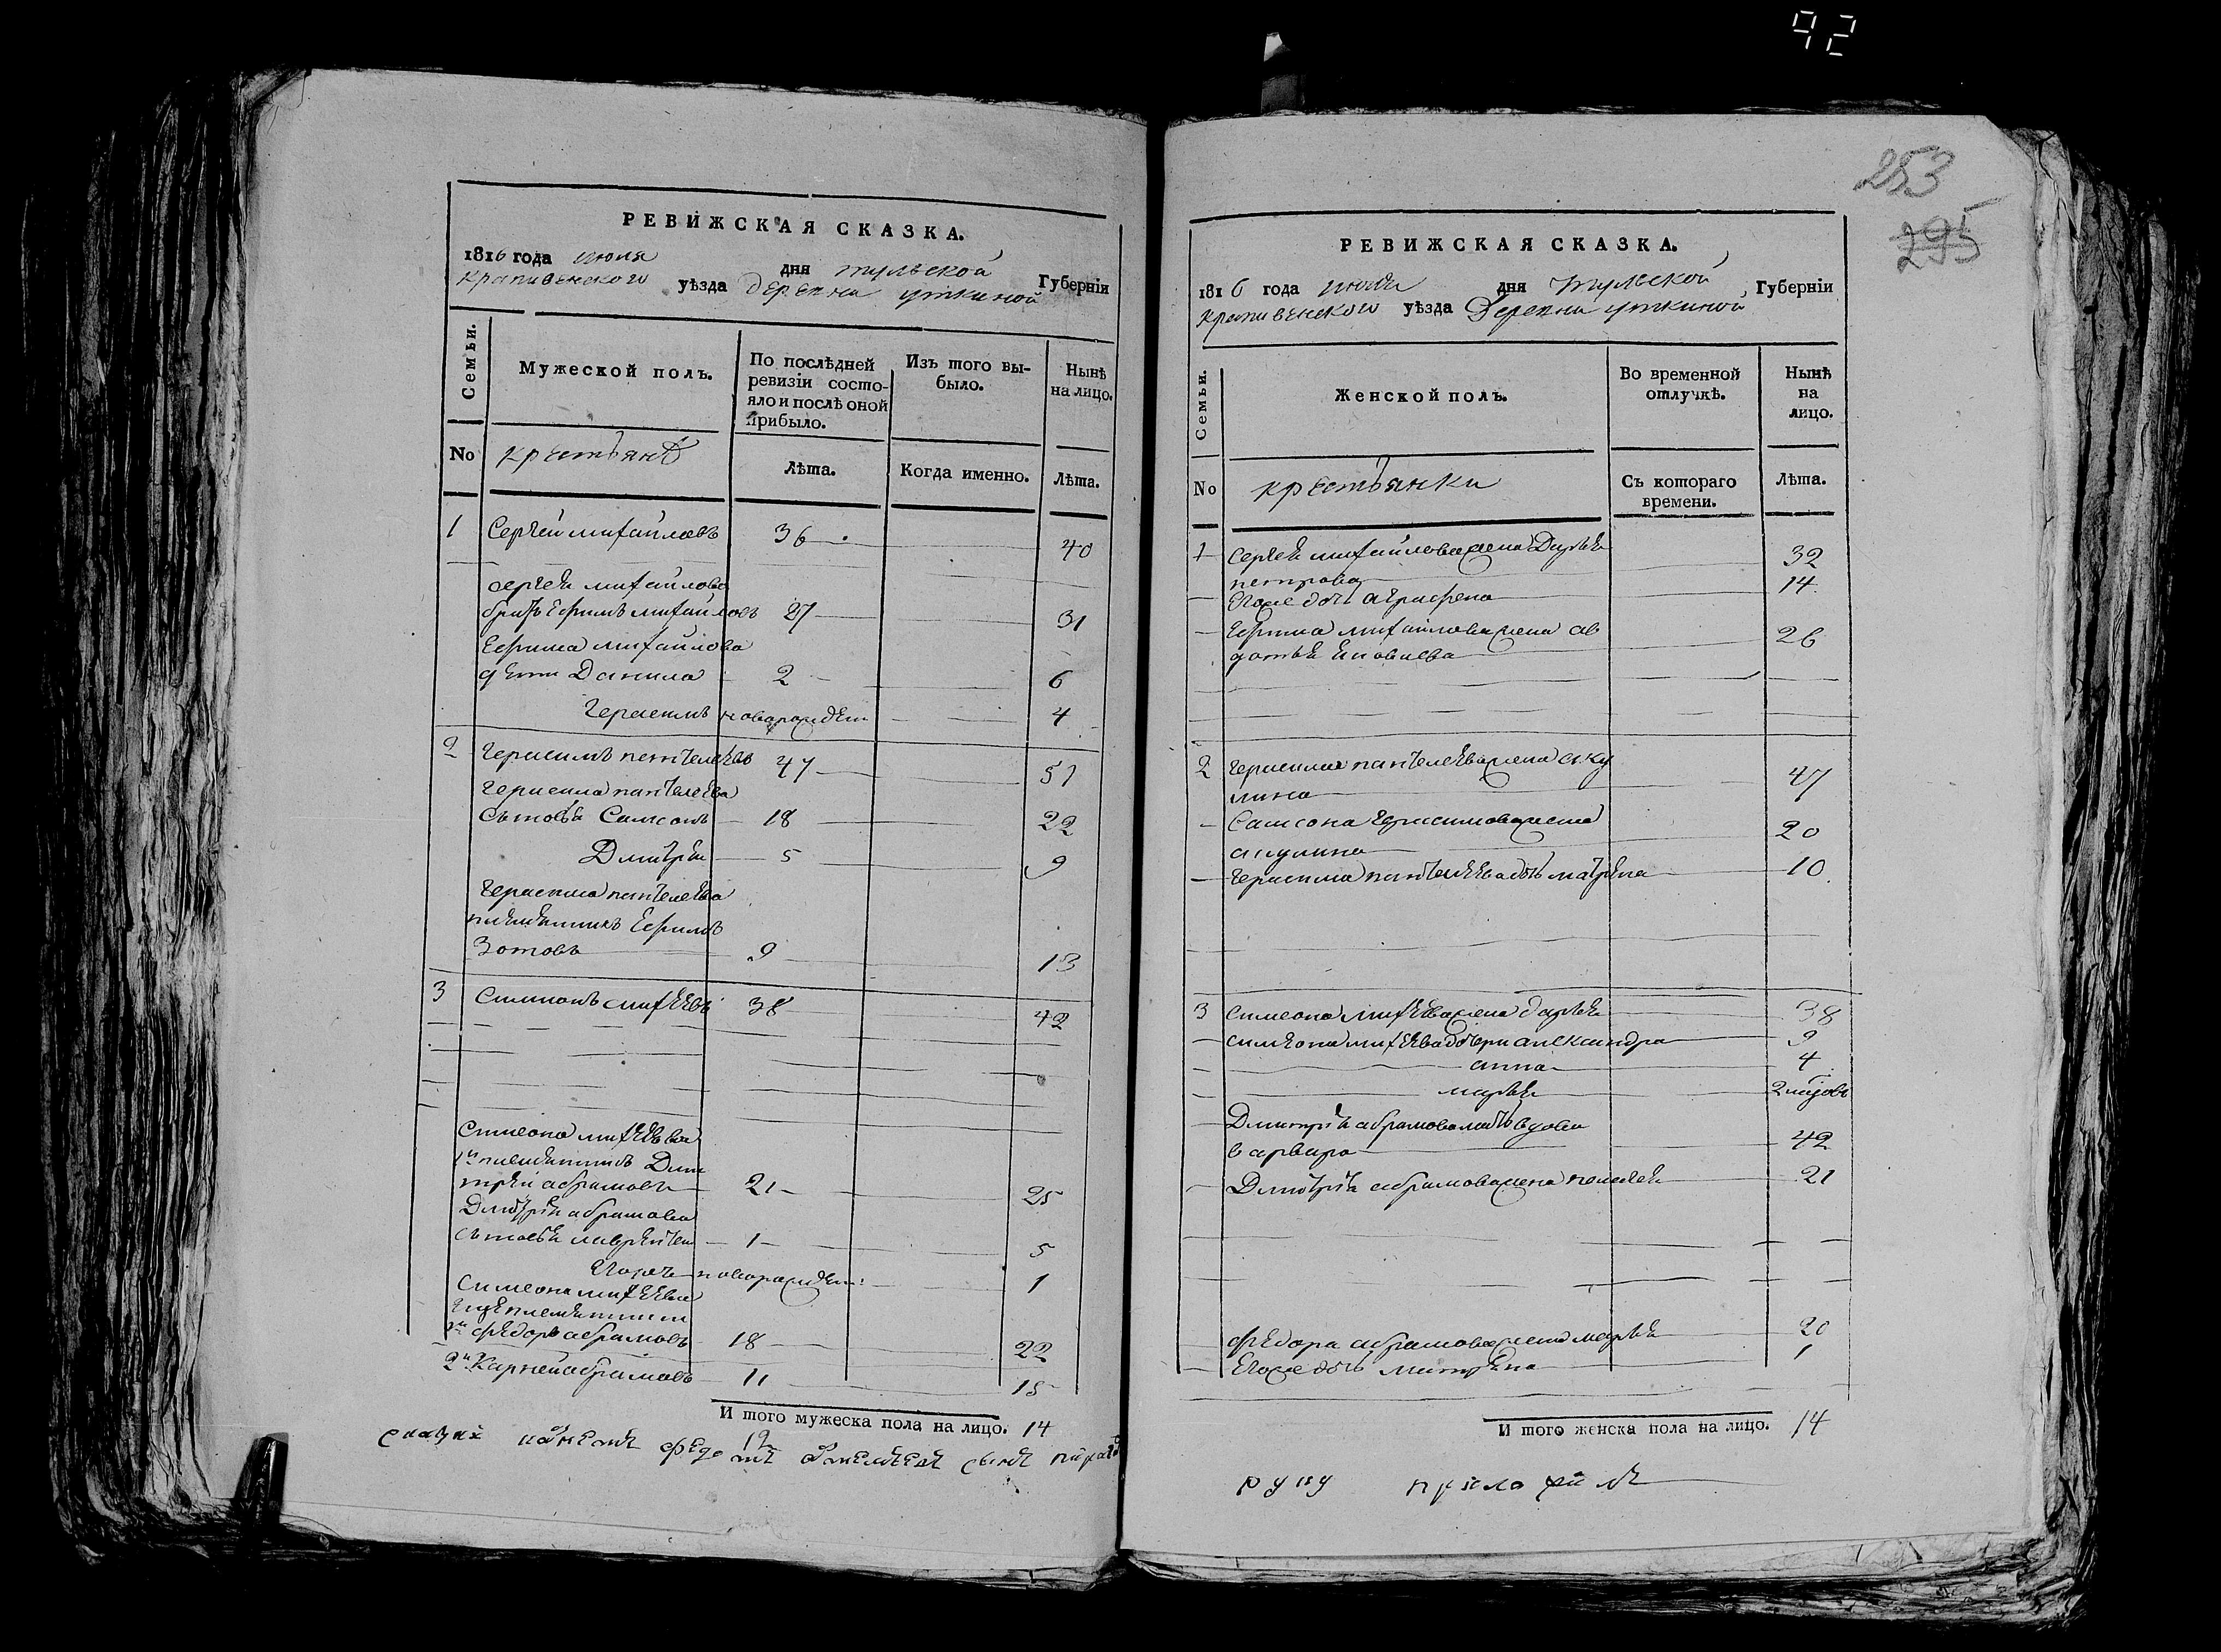 92
253
295
РЕВИЖСКАЯ СКАЗКА.
1816 года июля дня тульской Губерніи
крапивенского уѣзда деревни уткиной
Семьи.
Мужеской полъ.
По послѣдней ревизіи состояло и послѣ оной прибыло.
Изъ того выбыло.
Нынѣ на лицо.
No
крестьянѣ
Лѣта.
Когда именно.
Лѣта.
1 Сергей михайловъ 36 40
сергея михайлова
братъ Ефимъ михайловъ 27 31
Ефима михайлова
дети Данила 2 6
Герасимъ новарожден 4
2 Герасимъ пентелеевъ 47 51
Герасима пантелеева
сыновья Самсонъ 18 22
Дмитрей 5 9
Герасима пантелеева
племянникъ Ефимъ
Зотовъ 9 13
3 Симионъ михеевъ 38 42
Симеона михеева
1й племянникъ Дми
трей абрамовъ 21 25
Дмитрея абрамова
сыновья лаврентеи 1 5
Егоръ новорожден: 1
Симеона михеева
еще племянники
1й федоръ абрамовъ 18 22
2й Карней абрамовъ 11 15
И того мужеска пола на лицо. 14
12
РЕВИЖСКАЯ СКАЗКА.
1816 года июля дня тульской Губерніи
крапивенского уѣзда Деревни уткиной
Семьи.
Женской полъ.
Во временной отлучкѣ.
Нынѣ на лицо.
No
крестьянки
Съ котораго времени.
Лѣта.
1 Сергея михайлова жена Дарья 32
петрова
Егоже дочь аграфена 14
Ефима михайлова жена ав 26
дотья
2 Герасима пантелеева жена аку 47
лина
Самсона Герасимова жена 20
акулина
Герасима пантелеева дочь матрена 10
3 Симеона михеева жена дарья 38
симеона михеева дочери александра 9
анна 4
марья
Дмитрея абрамова мать вдова
варвара 42
Дмитрея абрамова жена пелагея 21
федора абрамова жена марья 20
Егоже дочь матрена 1
И того женска пола на лицо. 14
руку приложилъ